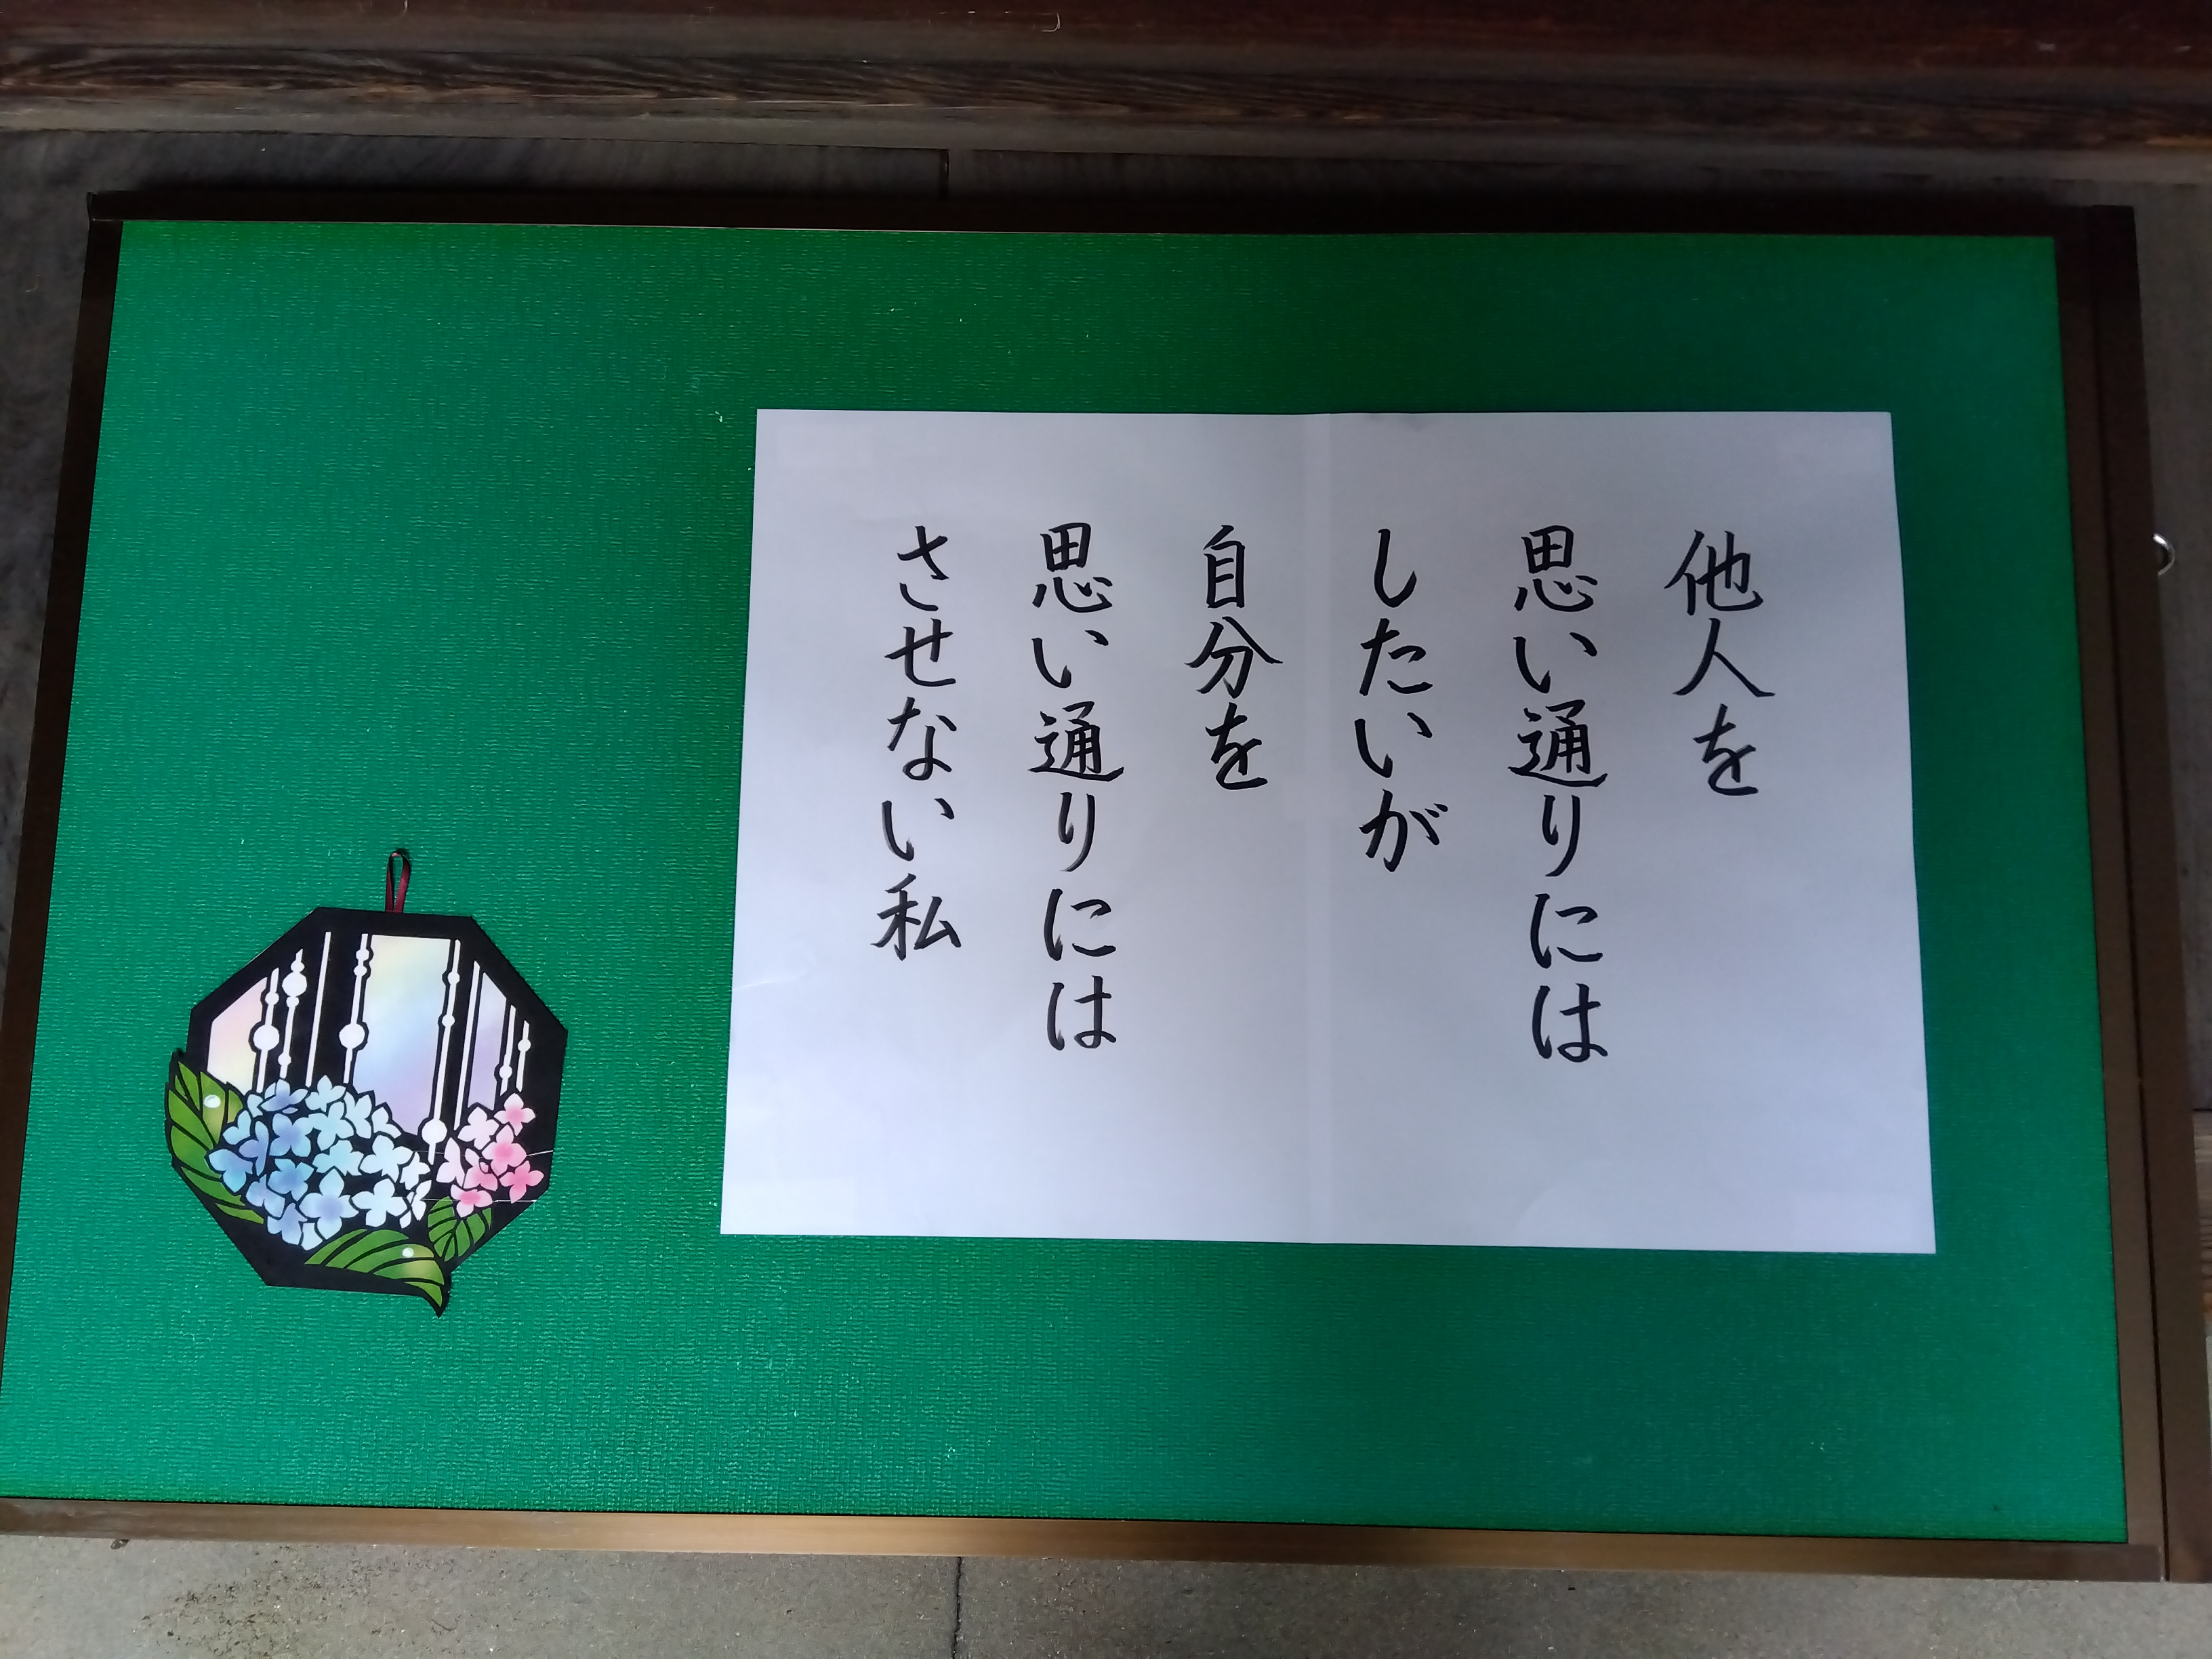 他人を
思い通りには
したいが
自分を
思い通りには
させない私